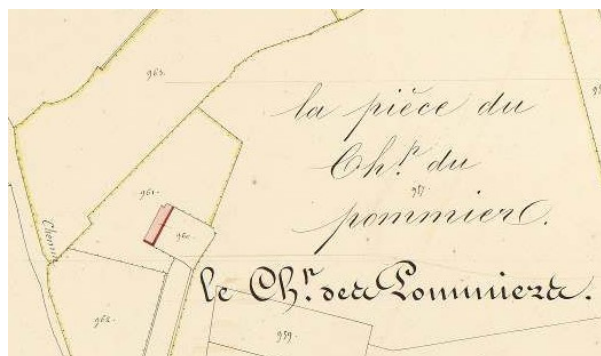 963.
la pièce du
Ch.p du
957.
pommier.
961.
960.
Chemin
le Ch.r des Pommiers.
962.
959.